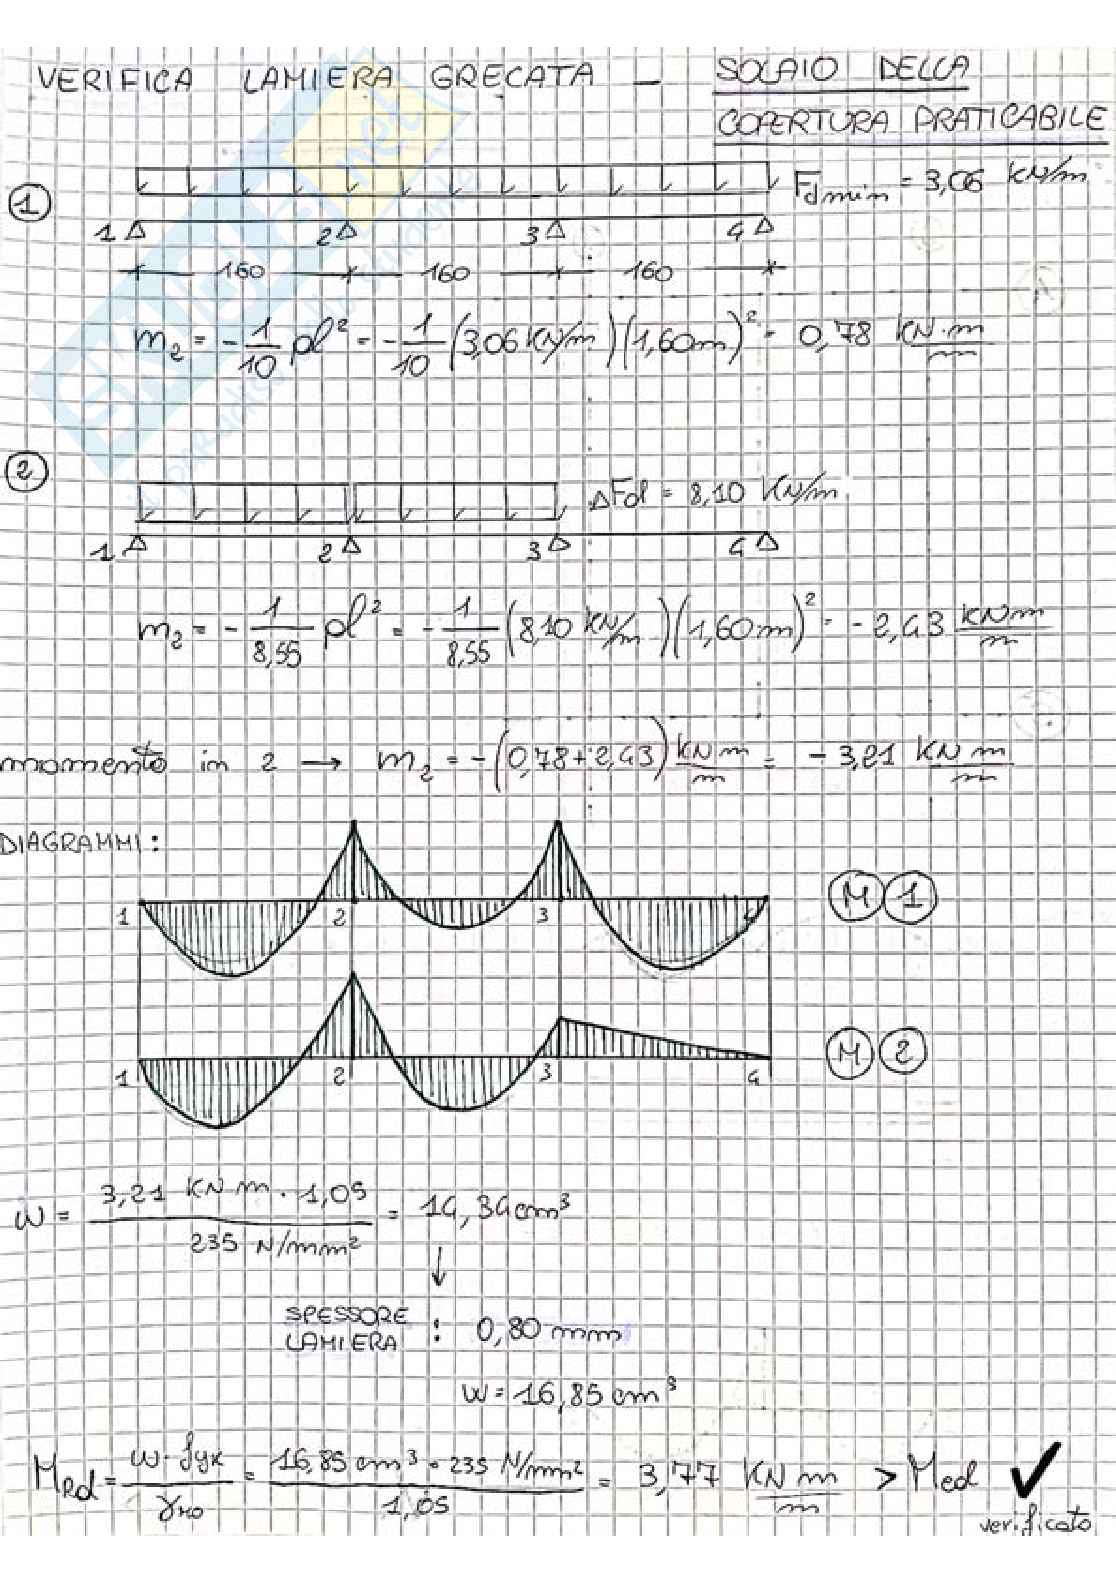 VERIFICA LAMIERA GRECATA — SOLAIO DELLA
COPERTURA PRATICABILE
① Fdmin = 3,06 KN/m
1 2 3 4
160 160 160
m₂ = - 1/10 pl² = - 1/10 (3,06 KN/m)(1,60m)² = 0,78 KN·m/m
② ΔFd = 8,10 KN/m
1 2 3 4
m₂ = - 1/8,55 pl² = - 1/8,55 (8,10 KN/m)(1,60m)² = - 2,43 KNm/m
momento in 2 → m₂ = -(0,78+2,43) KNm/m = - 3,21 KNm/m
DIAGRAMMI:
1 2 3 4 M 1
1 2 3 4 M 2
W = 3,21 KNm · 1,05 / 235 N/mm² = 14,34 cm³
↓
SPESSORE LAMIERA : 0,80 mm
W = 16,85 cm³
MRd = W·fyk / γM0 = 16,85 cm³ · 235 N/mm² / 1,05 = 3,77 KNm/m > Med ✓
verificato